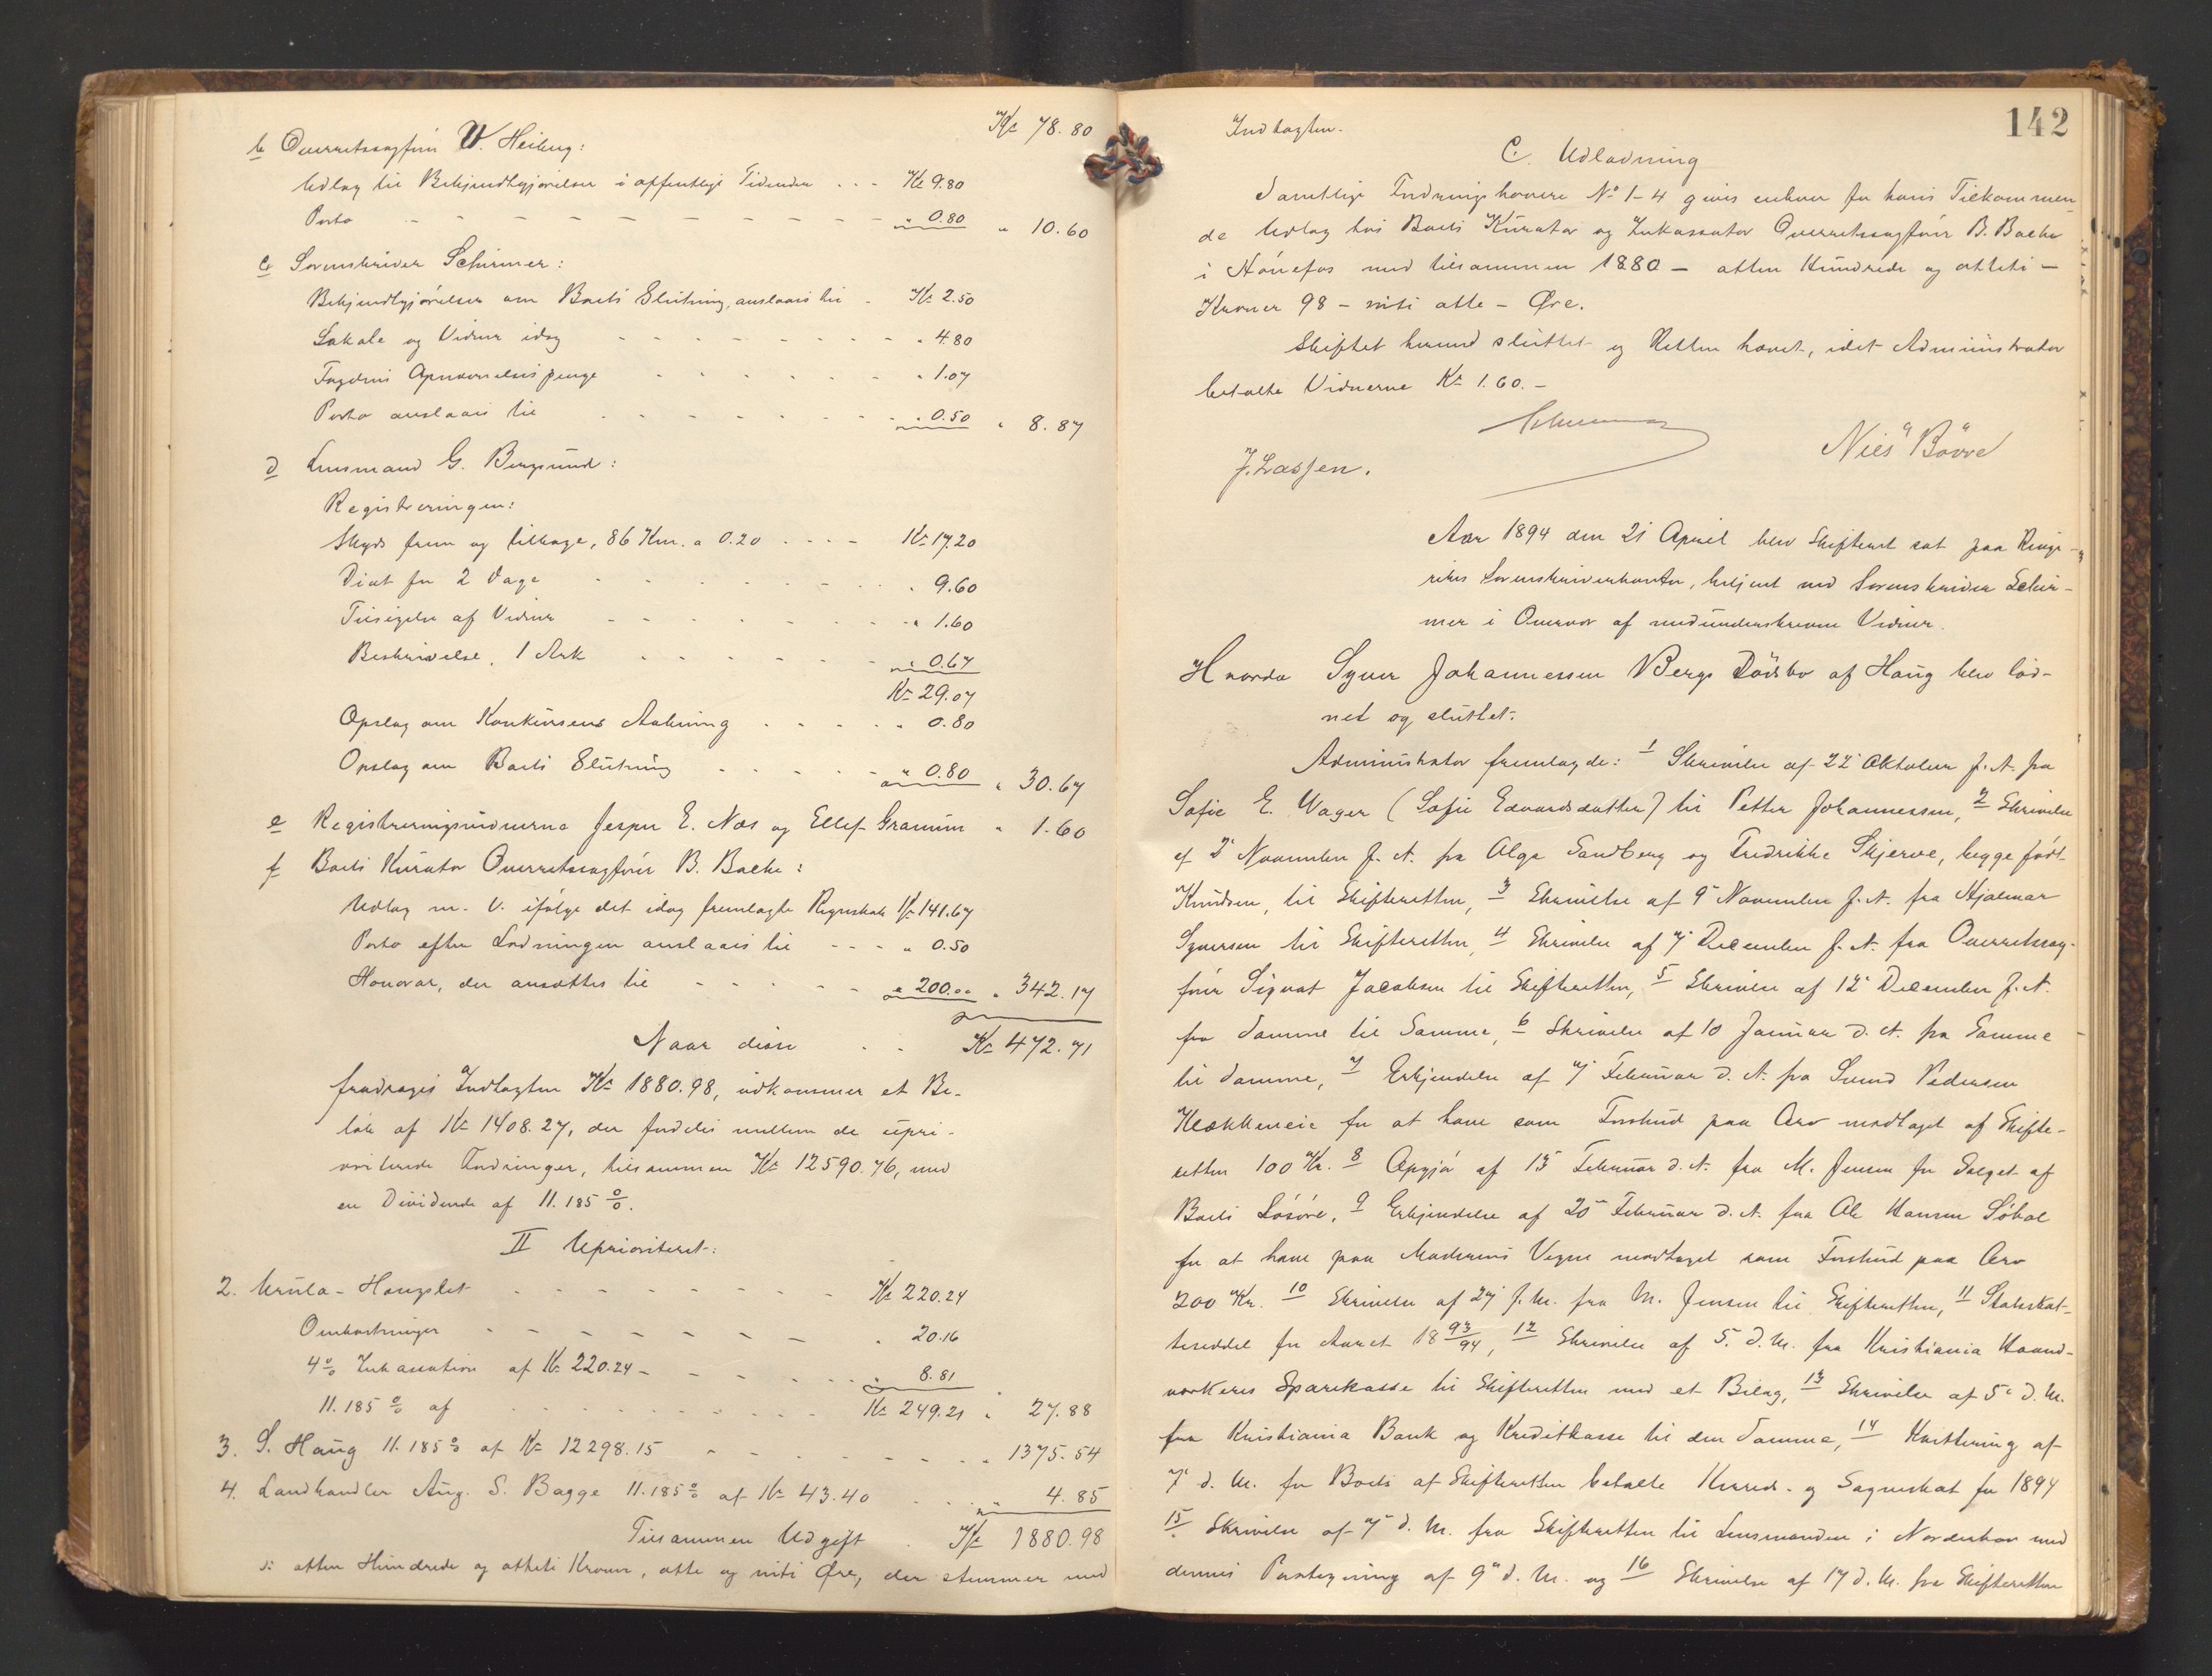 Kr 78.80
b Overretssagfører W. Heiberg:
Udlæg til Bekjendtgjørelser i offentlige Tidender . . . Kr 9.80
Porto - - - - - - - - - " 0.80 " 10.60
c Sorenskriver Schirmer:
Bekjendtgjørelser om Boets Slutning, anslaaes til - Kr 2.50
Lokale og Vidner idag - - - - - - - " 4.80
Fogdens Oprævnelsespenge - - - - - - " 1.07
Porto anslaaes til - - - - - - - " 0.50 " 8.87
d Lensmand G. Bergsund:
Registreringen:
Skyds frem og tilbage, 86 Km. a 0.20 . . . - Kr 17.20
Diæt for 2 Dage - - - - - - " 9.60
Tilsigelse af Vidner - - - - - - " 1.60
Beskrivelse, 1 Ark . . . . . " 0.67
Kr 29.07
Opslag om Konkursens Aabning . . . . " 0.80
Opslag om Boets Slutning - - - - " 0.80 " 30.67
e Registreringsvidnerne Jesper E. Næs og Ellef Granum " 1.60
f Boets Kurator Overretssagfører B. Bache:
Udlæg m. V. ifølge det idag fremlagte Regnskab Kr 141.67
Porto efter Lodningen anslaaes til - - - " 0.50
Honorar, der ansættes til - - - - - " 200.00 " 342.17
Naar disse . . Kr 472.71
fradrages Indtægten Kr 1880.98, udkommer et Be-
løb af Kr 1408.27, der fordeles mellem de upri-
oriterede Fordringer, tilsammen Kr 12590.76, med
en Dividende af 11.185 %.
II Uprioriteret:
2. Urula - Hougslet - - - - - - - Kr 220.24
Omkostninger - - - - - - - " 20.16
4 % Inkassation af Kr 220.24 - - - - . . . " 8.81
11.185 % af . . . . . . . . . Kr 249.21 " 27.88
3. S. Haug 11.185 % af Kr 12298.15 - - - - - . . " 1375.54
4. Landhandler Aug. S. Bagge 11.185 % af Kr 43.40 . . . " 4.85
Tilsammen Udgift . Kr 1880.98
d: atten Hundrede og otteti Kroner, otte og niti Øre, der stemmer med
142
Indtægten.
C. Udlodning
Samtlige Fordringshavere No 1-4 gives enhver for hans Tilkommen-
de Udlæg hos Boets Kurator og Inkassator Overretssagfører B. Bache
i Hönefos med tilsammen 1880 - atten Hundrede og otteti -
Kroner 98 - niti otte - Øre.
Skiftet hermed sluttet og Retten hævet, idet Administrator
betalte Vidnerne Kr 1.60. -
Schirmer
J. Lassen. Niels Bövre
Aar 1894 den 21 April blev Skifteret sat paa Ringe-
rikes Sorenskriverkontor, betjent ved Sorenskriver Schir-
mer i Overvær af medunderskrevne Vidner.
Hvorda Syver Johannessen Bergs Dödsbo af Haug blev lod-
net og sluttet.
Administrator fremlagde: 1 Skrivelse af 22 Oktober f. A. fra
Sofie E. Wager (Sofie Edvardsdatter) til Petter Johannessen, 2 Skrivelse
af 2 November f. A. fra Olga Sandberg og Fredrikke Skjerve, begge født
Knudsen, til Skifteretten, 3 Skrivelse af 9 November f. A. fra Hjalmar
Syversen til Skifteretten, 4 Skrivelse af 7 December f. A. fra Overretssag-
fører Sigvat Jacobsen til Skifteretten, 5 Skrivelse af 12 December f. A.
fra Samme til Samme, 6 Skrivelse af 10 Januar d. A. fra Samme
til Samme, 7 Erkjendelse af 7 Februar d. A. fra Svend Pedersen
Klækkeneie for at have som Forskud paa Arv modtaget af Skifte-
retten 100 Kr. 8 Opgjör af 13 Februar d. A. fra M. Jensen for Salget af
Boets Lösöre, 9 Erkjendelse af 20 Februar d. A. fra Ole Hansen Søhol
for at have paa Moderens Vegne modtaget som Forskud paa Arv
200 Kr. 10 Skrivelse af 27 f. M. fra M. Jensen til Skifteretten, 11 Statsskat-
teseddel for Aaret 18 93/94, 12 Skrivelse af 5. d. M. fra Kristiania Haand-
værkeres Sparekasse til Skifteretten med et Bilag, 13 Skrivelse af 5 d. M.
fra Kristiania Bank og Kreditkasse til den Samme, 14 Kvittering af
7 d. M. for Boets af Skifteretten betalte Herreds- og Sogneskat for 1894
15 Skrivelse af 7 d. M. fra Skifteretten til Lensmanden i Norderhov med
dennes Paategning af 9 d. M. og 16 Skrivelse af 17 d. M. fra Skifteretten